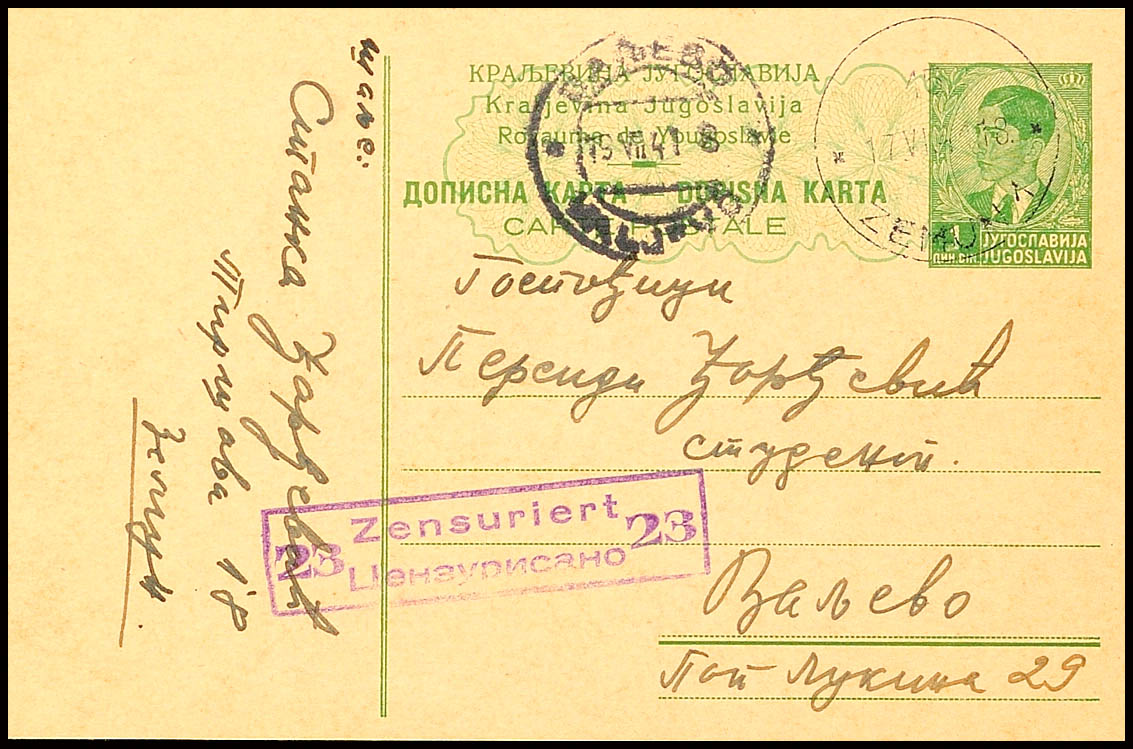 КРАЉЕВИНА ЈУГОСЛАВИЈА
Kraljevina Jugoslavija
Royaume de Yougoslavie
ДОПИСНА КАРТА — DOPISNA KARTA
CARTE POSTALE
1 ЈУГОСЛАВИЈА
ДИН. DIN. JUGOSLAVIJA
ВАЉЕВО
19 VII 41 8
17.VII 18.
ZEMUN
Госпођици
Персиди Ђорђевић
студент.
Ваљево
Поп Лукина 29
Zensuriert
23 23
Цензурисано
шаље:
Станка Ђорђевић
18
Земун